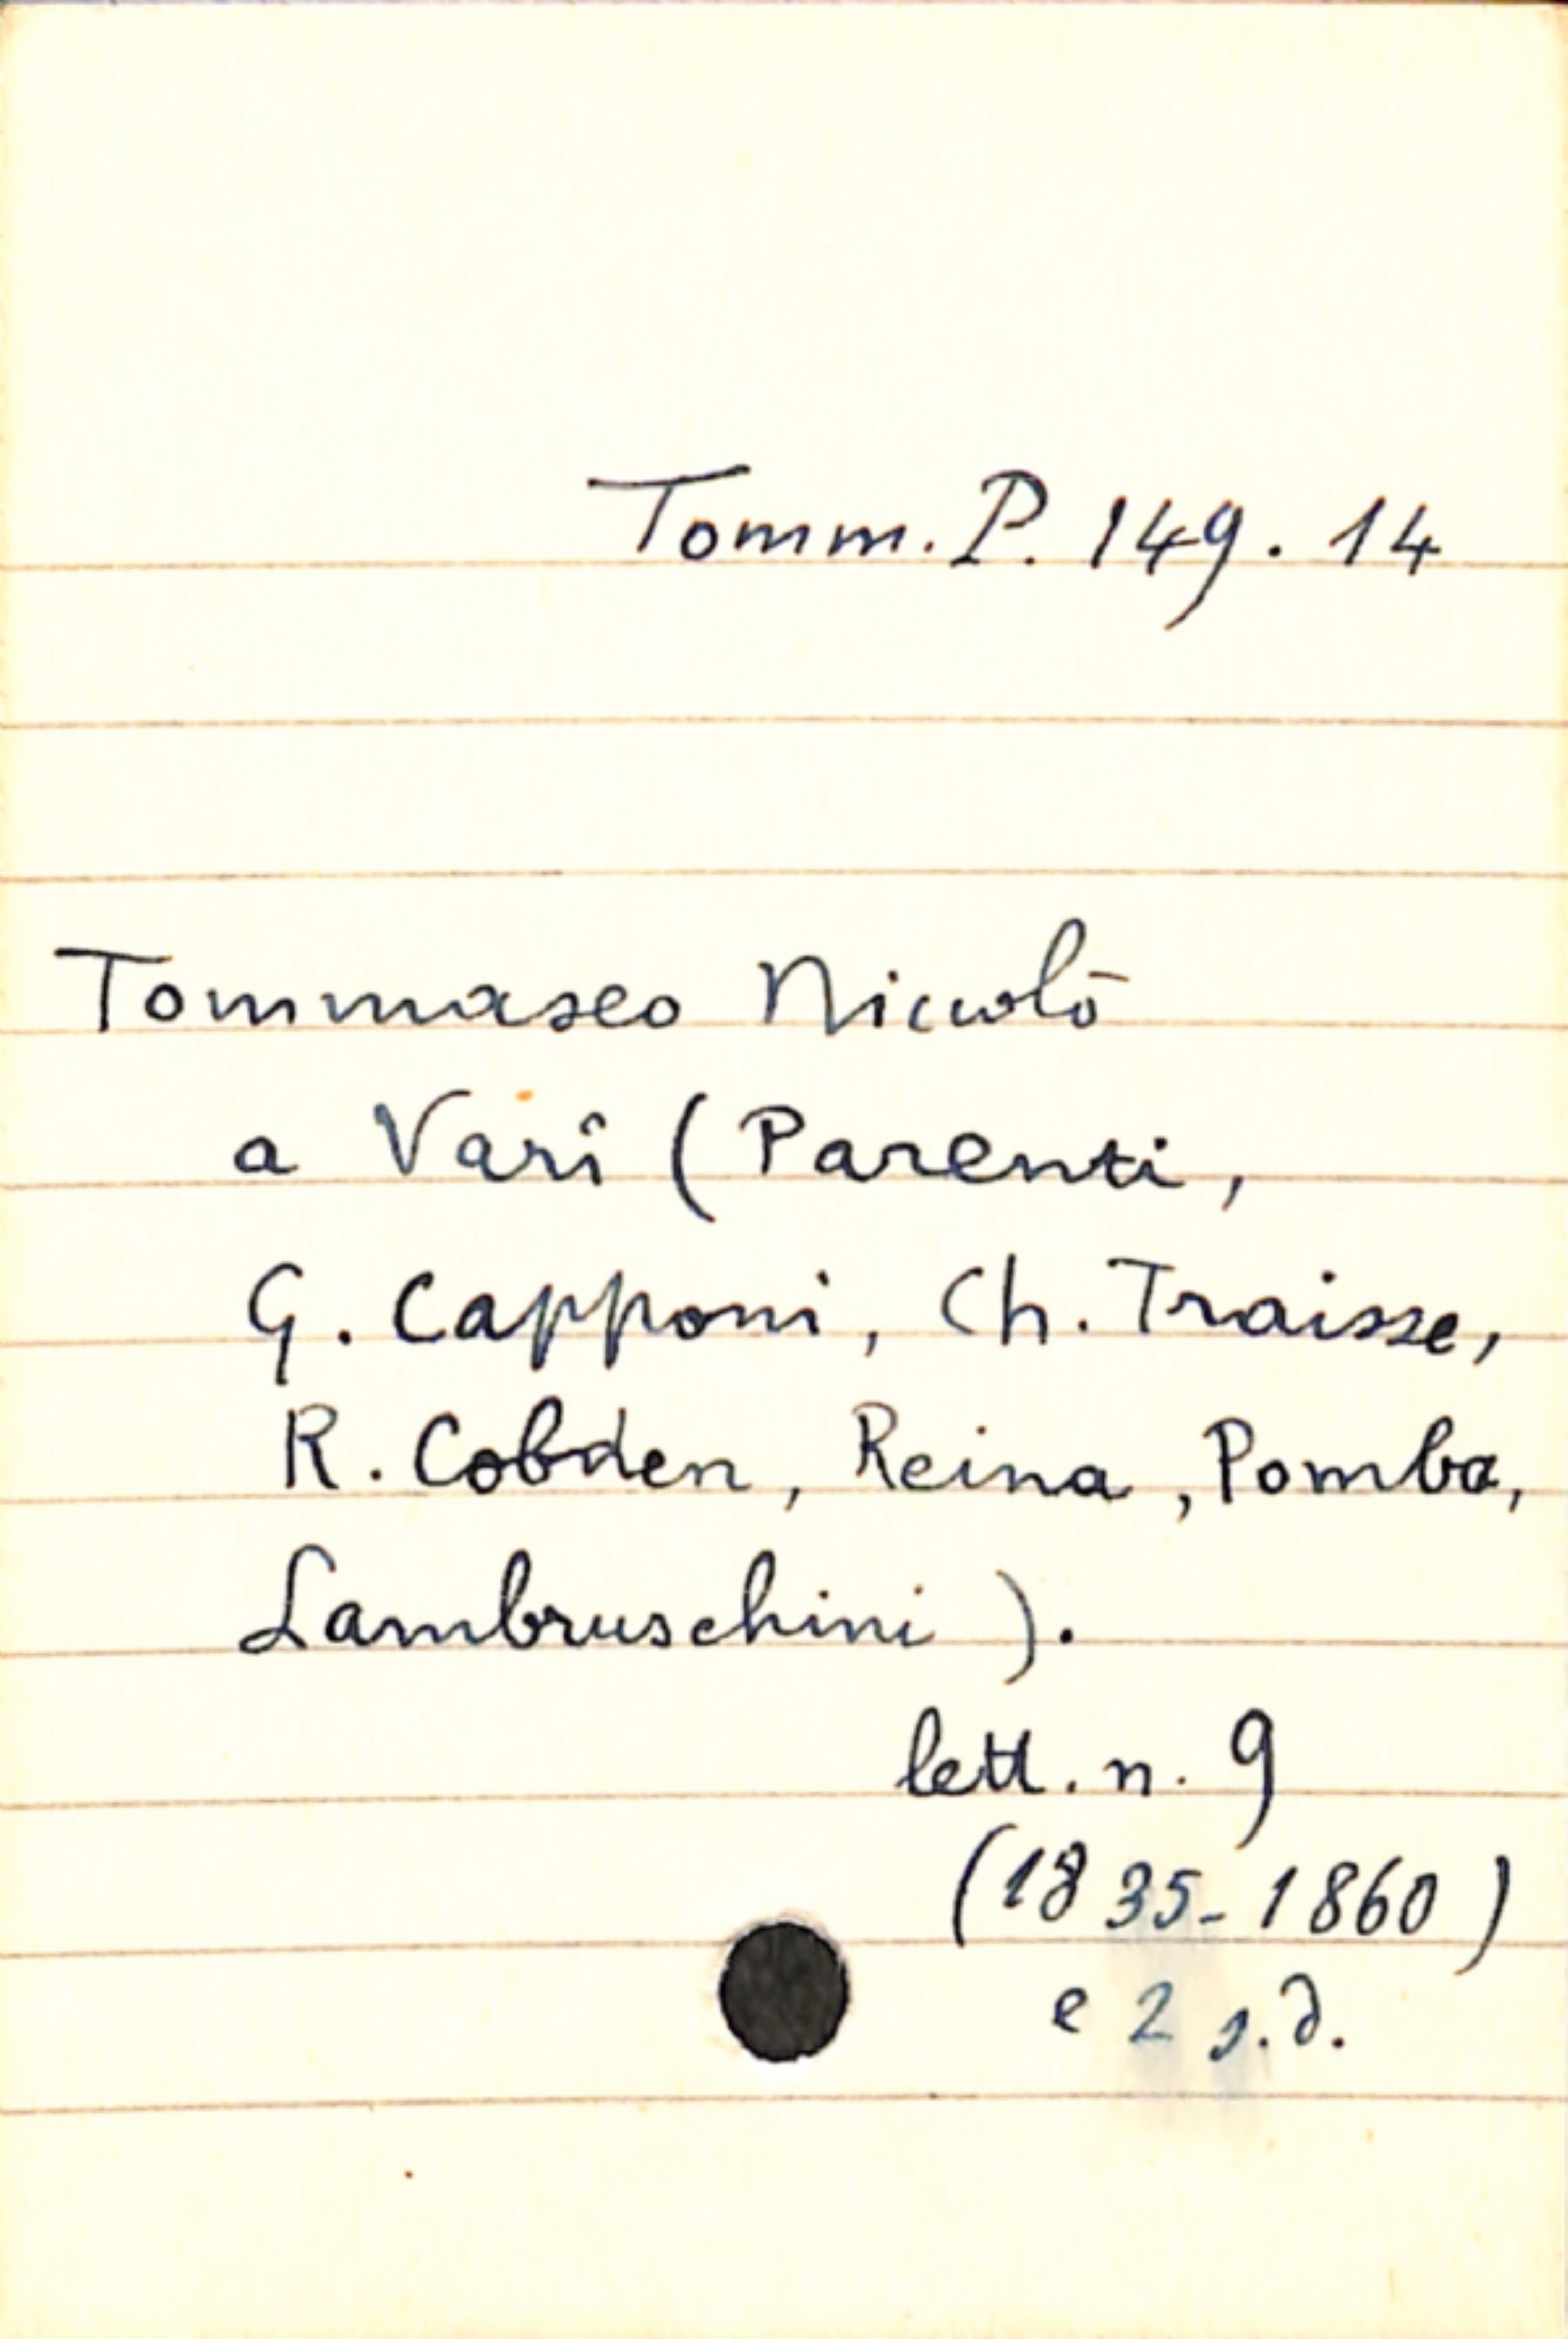 Tomm. P. 149. 14
Tommaseo Niccolò
a Varî (Parenti,
G. Capponi, Ch. Traisse,
R. Cobden, Reina, Pomba,
Lambruschini).
lett. n. 9
(1835-1860)
e 2 s.d.